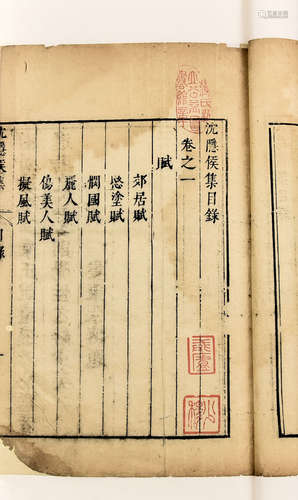 沈隱侯集目錄
卷之一
賦
郊居賦
愍塗賦
憫國賦
麗人賦
傷美人賦
擬風賦
沈隱侯集 目錄